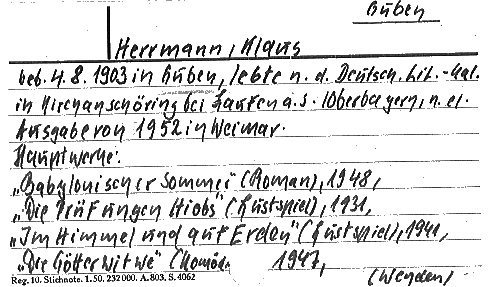 Guben
Herrmann, Klaus
geb. 4.8.1903 in Guben, lebte n. d. Deutsch. Lit.-Kal.
in Kirchanschöring bei Laufen a.S. Oberbayern, n. ei.
Ausgabe von 1952 in Weimar.
Hauptwerke:
„Babylonischer Sommer" (Roman), 1948,
„Die Prüfungen Hiobs" (Lustspiel), 1931,
„Im Himmel und auf Erden" (Lustspiel), 1941,
„Die Götterwitwe" 1947,
(Wenden)
Reg. 10. Stichnote. 1. 50. 232000. A. 803. S. 4062